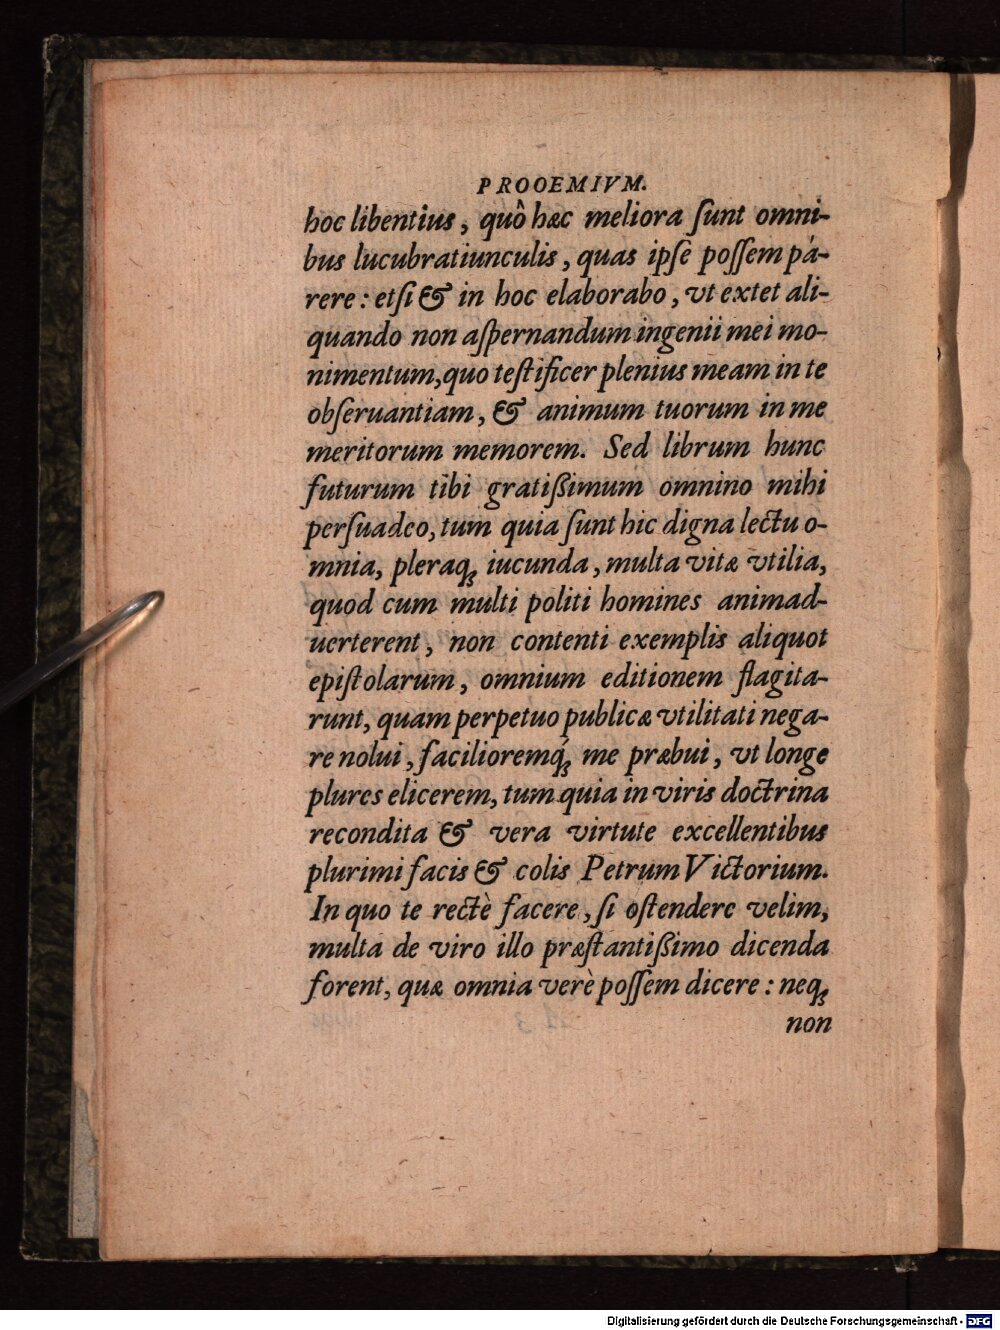 PROOEMIVM.
hoc libentius, quô hæc meliora ſunt omni-
bus lucubratiunculis, quas ipſe poſſem pá-
rere: etſi & in hoc elaborabo, vt extet ali-
quando non aſpernandum ingenii mei mo-
nimentum, quo teſtificer plenius meam in te
obſeruantiam, & animum tuorum in me
meritorum memorem. Sed librum hunc
futurum tibi gratißimum omnino mihi
perſuadeo, tum quia ſunt hic digna lectu o-
mnia, pleraq; iucunda, multa vitæ vtilia,
quod cum multi politi homines animad-
uerterent, non contenti exemplis aliquot
epiſtolarum, omnium editionem flagita-
runt, quam perpetuo publicæ vtilitati nega-
re nolui, facilioremq́; me præbui, vt longe
plures elicerem, tum quia in viris doctrina
recondita & vera virtute excellentibus
plurimi facis & colis Petrum Victorium.
In quo te rectè facere, ſi oſtendere velim,
multa de viro illo præſtantißimo dicenda
forent, quæ omnia verè poſſem dicere: neq;
non
Digitalisierung gefördert durch die Deutsche Forschungsgemeinschaft - DFG